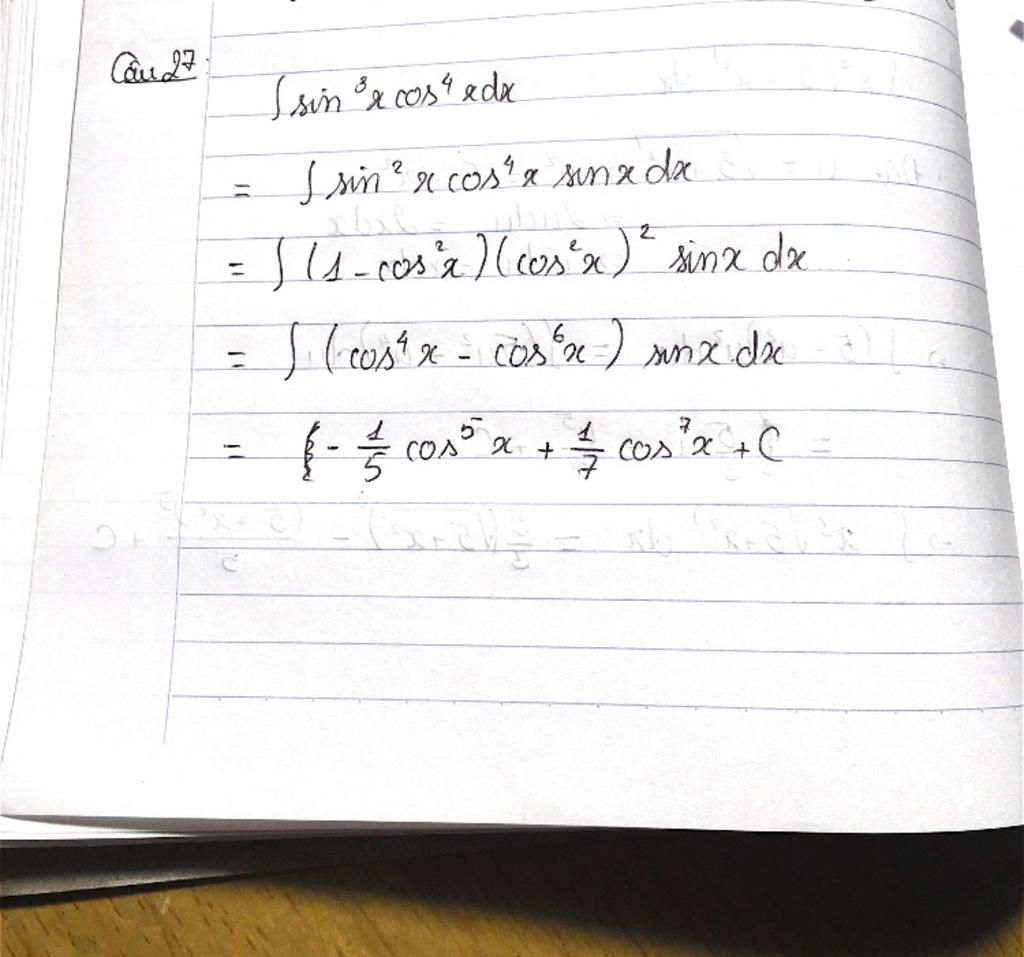 Câu 27:
∫ sin³x cos⁴xdx
= ∫ sin²x cos⁴x sinxdx
= ∫ (1 - cos²x)(cos²x)² sinx dx
= ∫ (cos⁴x - cos⁶x) sinx.dx
= - 1/5 cos⁵x + 1/7 cos⁷x + C